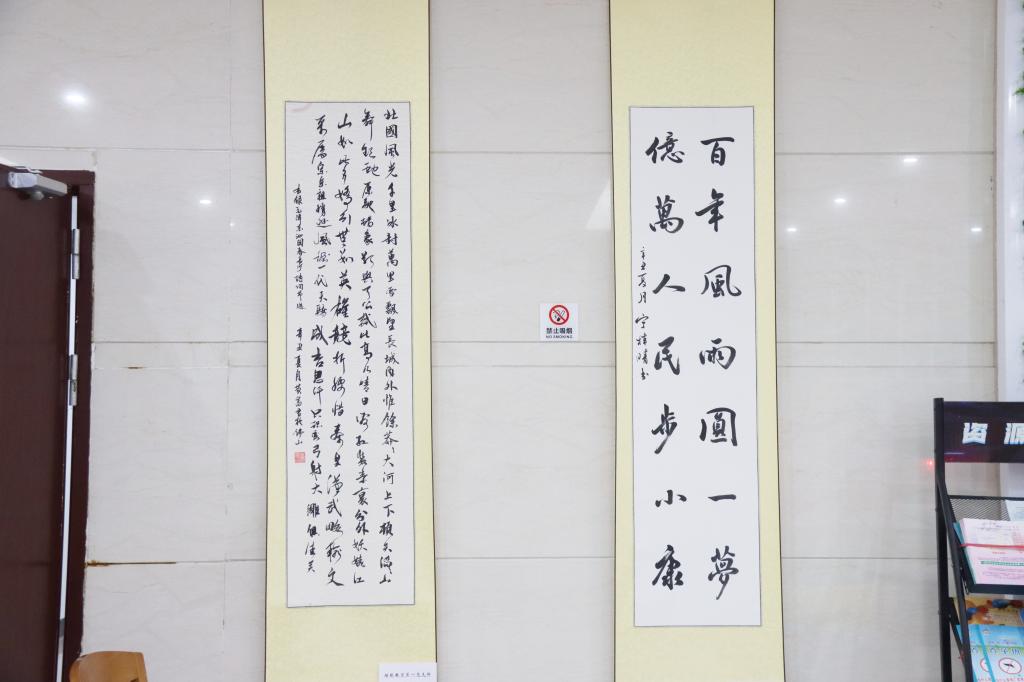 北國風光千里冰封萬里雪飄望長城內外惟餘莽莽大河上下頓失滔滔山
舞銀蛇原馳蠟象欲與天公試比高須晴日看紅裝素裹分外妖嬈江
山如此多嬌引無數英雄競折腰惜秦皇漢武略輸文
采唐宗宋祖稍遜風騷一代天驕成吉思汗只識彎弓射大雕俱往矣
毛澤東沁園春雪詩詞節選 辛丑夏月 書於佛山
禁止吸烟
NO SMOKING
百年風雨圓一夢
億萬人民步小康
辛丑夏月 書
资源